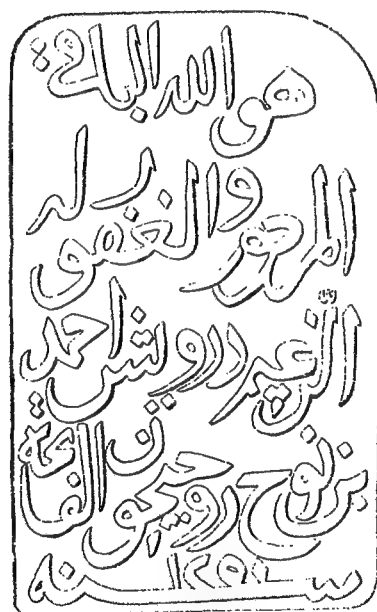 هو الله الباقى
المرحوم والغفور له
درويش احمد
بن نوح روحيچون الفاتحة
سنه